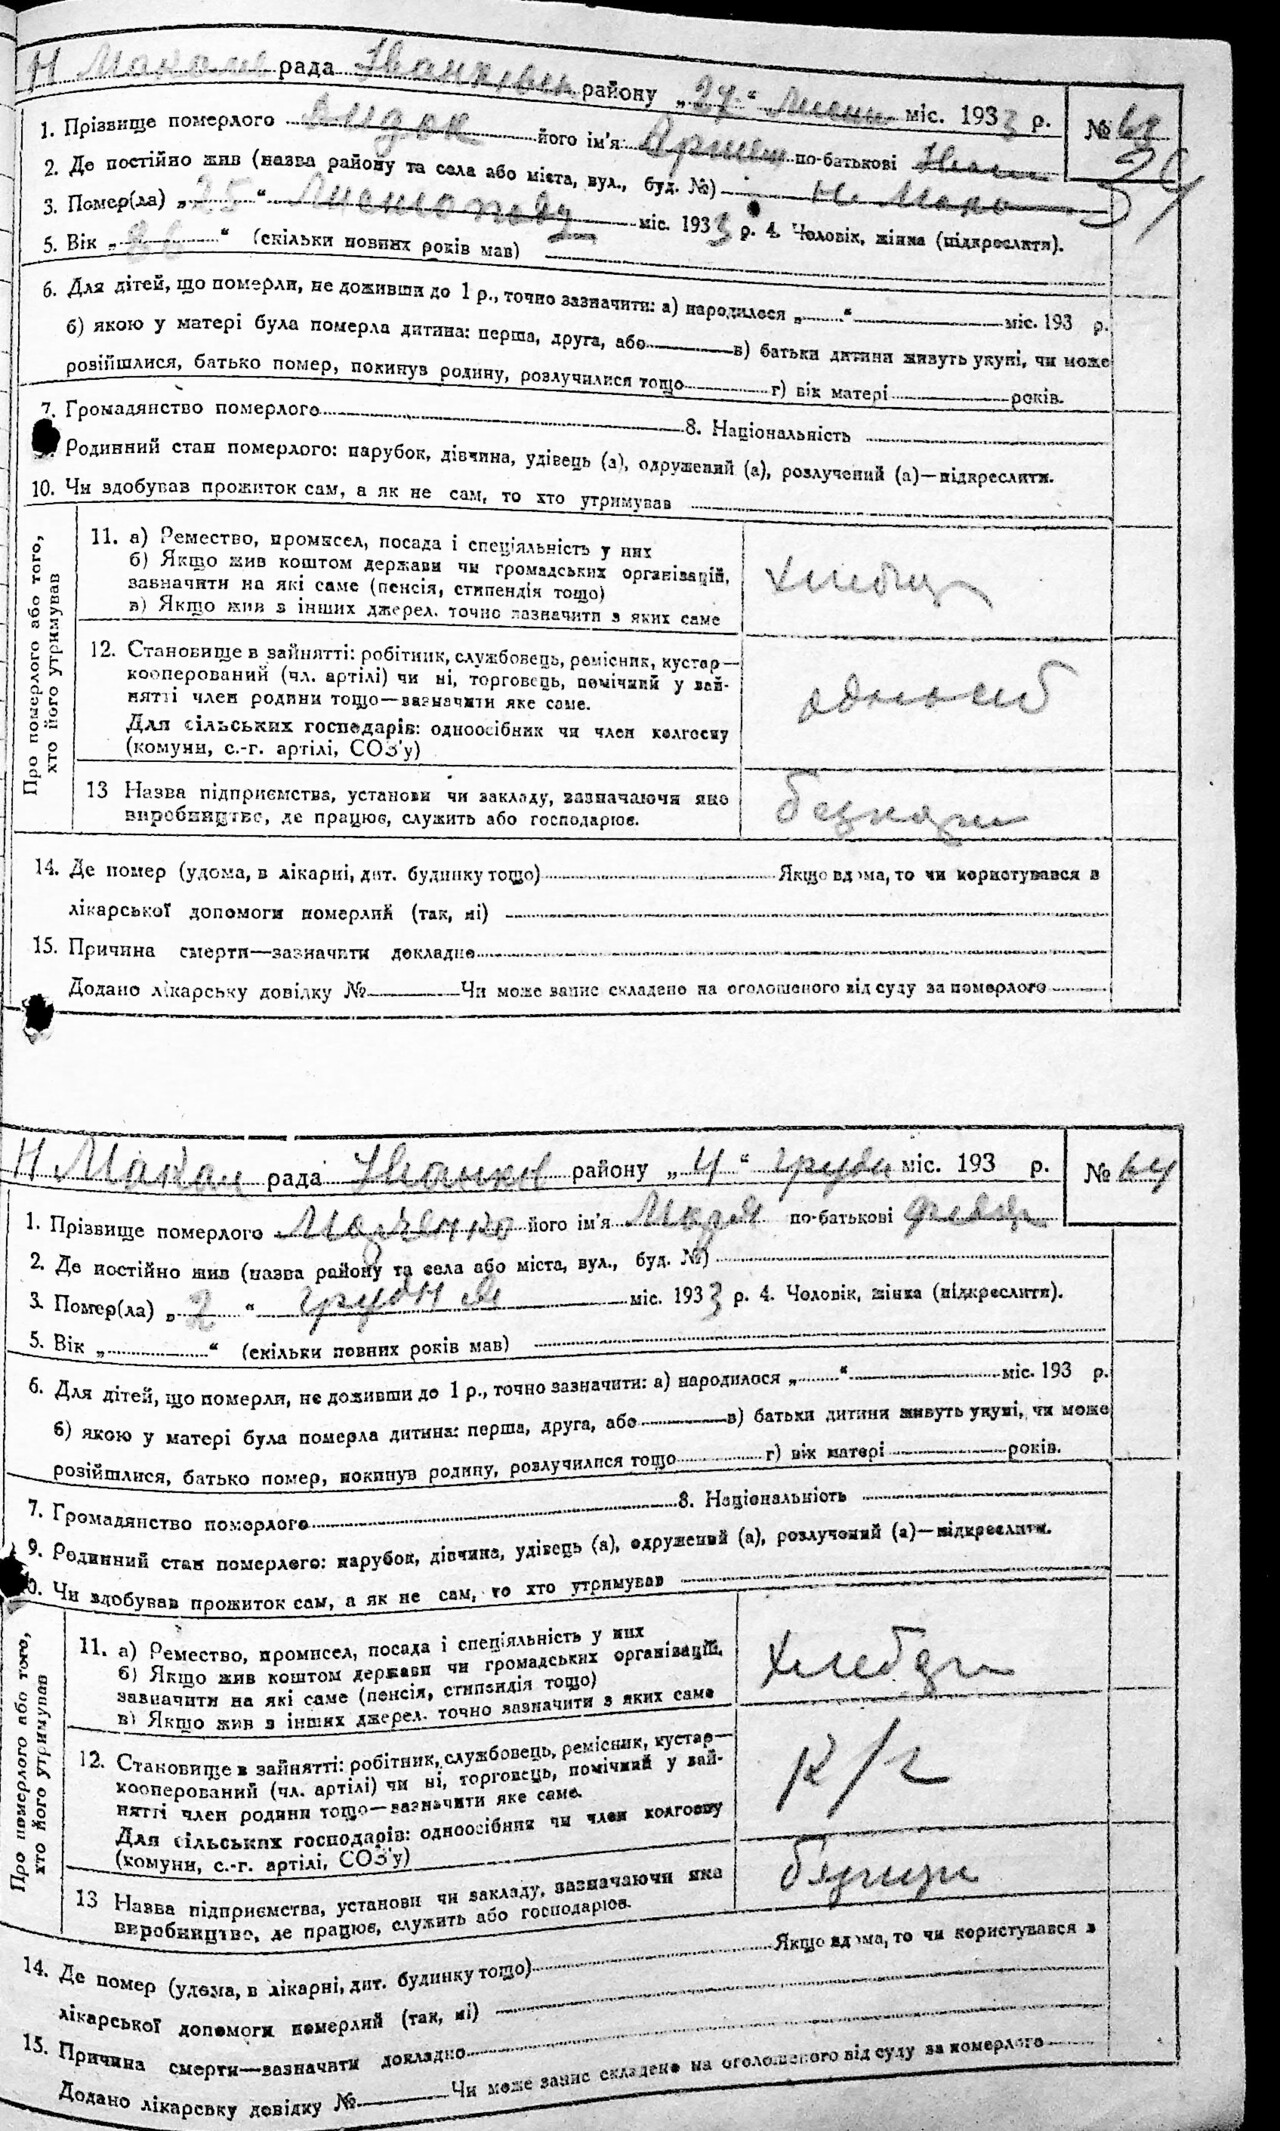 Н Макал рада Іванків району „27“ листоп міс. 1933 р. № 63
1. Прізвище померлого його ім'я по-батькові Іван
2. Де постійно жив (назва району та села або міста, вул., буд. №) Н. Мака
3. Помер(ла) „25“ Листопаду міс. 1933 р. 4. Чоловік, жінка (підкреслити).
5. Вік „ “ (скільки повних років мав)
6. Для дітей, що померли, не доживши до 1 р., точно зазначити: а) народилося „ “ міс. 193 р.
б) якою у матері була померла дитина: перша, друга, або в) батьки дитини живуть укупі, чи може
розійшлися, батько помер, покинув родину, розлучилися тощо г) вік матері років.
7. Громадянство померлого 8. Національність
Родинний стан померлого: парубок, дівчина, удівець (а), одружений (а), розлучений (а)—підкреслити.
10. Чи здобував прожиток сам, а як не сам, то хто утримував
Про померлого або того,
хто його утримував
11. а) Ремество, промисел, посада і спеціяльність у них
б) Якщо жив коштом держави чи громадських організацій,
зазначити на які саме (пенсія, стипендія тощо)
в) Якщо жив з інших джерел. точно зазначити з яких саме
12. Становище в зайнятті: робітник, службовець, ремісник, кустар—
кооперований (чл. артілі) чи ні, торговець, помічний у зай-
нятті член родини тощо—зазначити яке саме.
Для сільських господарів: одноосібник чи член колгоспу
(комуни, с.-г. артілі, СОЗ'у)
одноосіб
13 Назва підприємства, установи чи закладу, зазначаючи яке
виробництво, де працює, служить або господарює.
14. Де помер (удома, в лікарні, дит. будинку тощо) Якщо вдома, то чи користувався з
лікарської допомоги померлий (так, ні)
15. Причина смерти—зазначити докладно
Додано лікарську довідку № Чи може запис складено на оголошеного від суду за померлого
Н Макал рада Іванков району „4“ грудн міс. 193 р. № 64
1. Прізвище померлого його ім'я Марія по-батькові
2. Де постійно жив (назва району та села або міста, вул., буд. №)
3. Помер(ла) „2“ грудня міс. 1933 р. 4. Чоловік, жінка (підкреслити).
5. Вік „ “ (скільки повних років мав)
6. Для дітей, що померли, не доживши до 1 р., точно зазначити: а) народилося „ “ міс. 193 р.
б) якою у матері була померла дитина: перша, друга, або в) батьки дитини живуть укупі, чи може
розійшлися, батько помер, покинув родину, розлучилися тощо г) вік матері років.
7. Громадянство померлого 8. Національність
9. Родинний стан померлого: парубок, дівчина, удівець (а), одружений (а), розлучений (а)—підкреслити.
0. Чи здобував прожиток сам, а як не сам, то хто утримував
Про померлого або того,
хто його утримував
11. а) Ремество, промисел, посада і спеціяльність у них
б) Якщо жив коштом держави чи громадських організацій,
зазначити на які саме (пенсія, стипендія тощо)
в) Якщо жив з інших джерел. точно зазначити з яких саме
12. Становище в зайнятті: робітник, службовець, ремісник, кустар—
кооперований (чл. артілі) чи ні, торговець, помічний у зай-
нятті член родини тощо—зазначити яке саме.
Для сільських господарів: одноосібник чи член колгоспу
(комуни, с.-г. артілі, СОЗ'у)
К/г
13 Назва підприємства, установи чи закладу, зазначаючи яка
виробництво, де працює, служить або господарює.
14. Де помер (удома, в лікарні, дит. будинку тощо) Якщо вдома, то чи користувався з
лікарської допомоги померлий (так, ні)
15. Причина смерти—зазначити докладно
Додано лікарську довідку № Чи може запис складено на оголошеного від суду за померлого